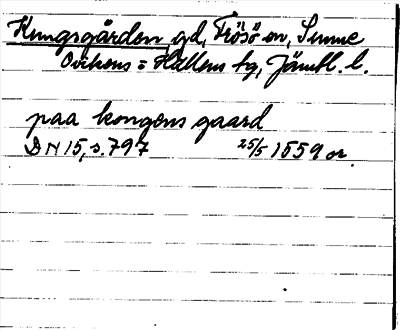 Kungsgården, gd, Frösö sn, Sunne
Ovikens = Hallens tg, Jämtl. l.
paa kongens gaard
DN 15, s. 797 25/5 1559 or.